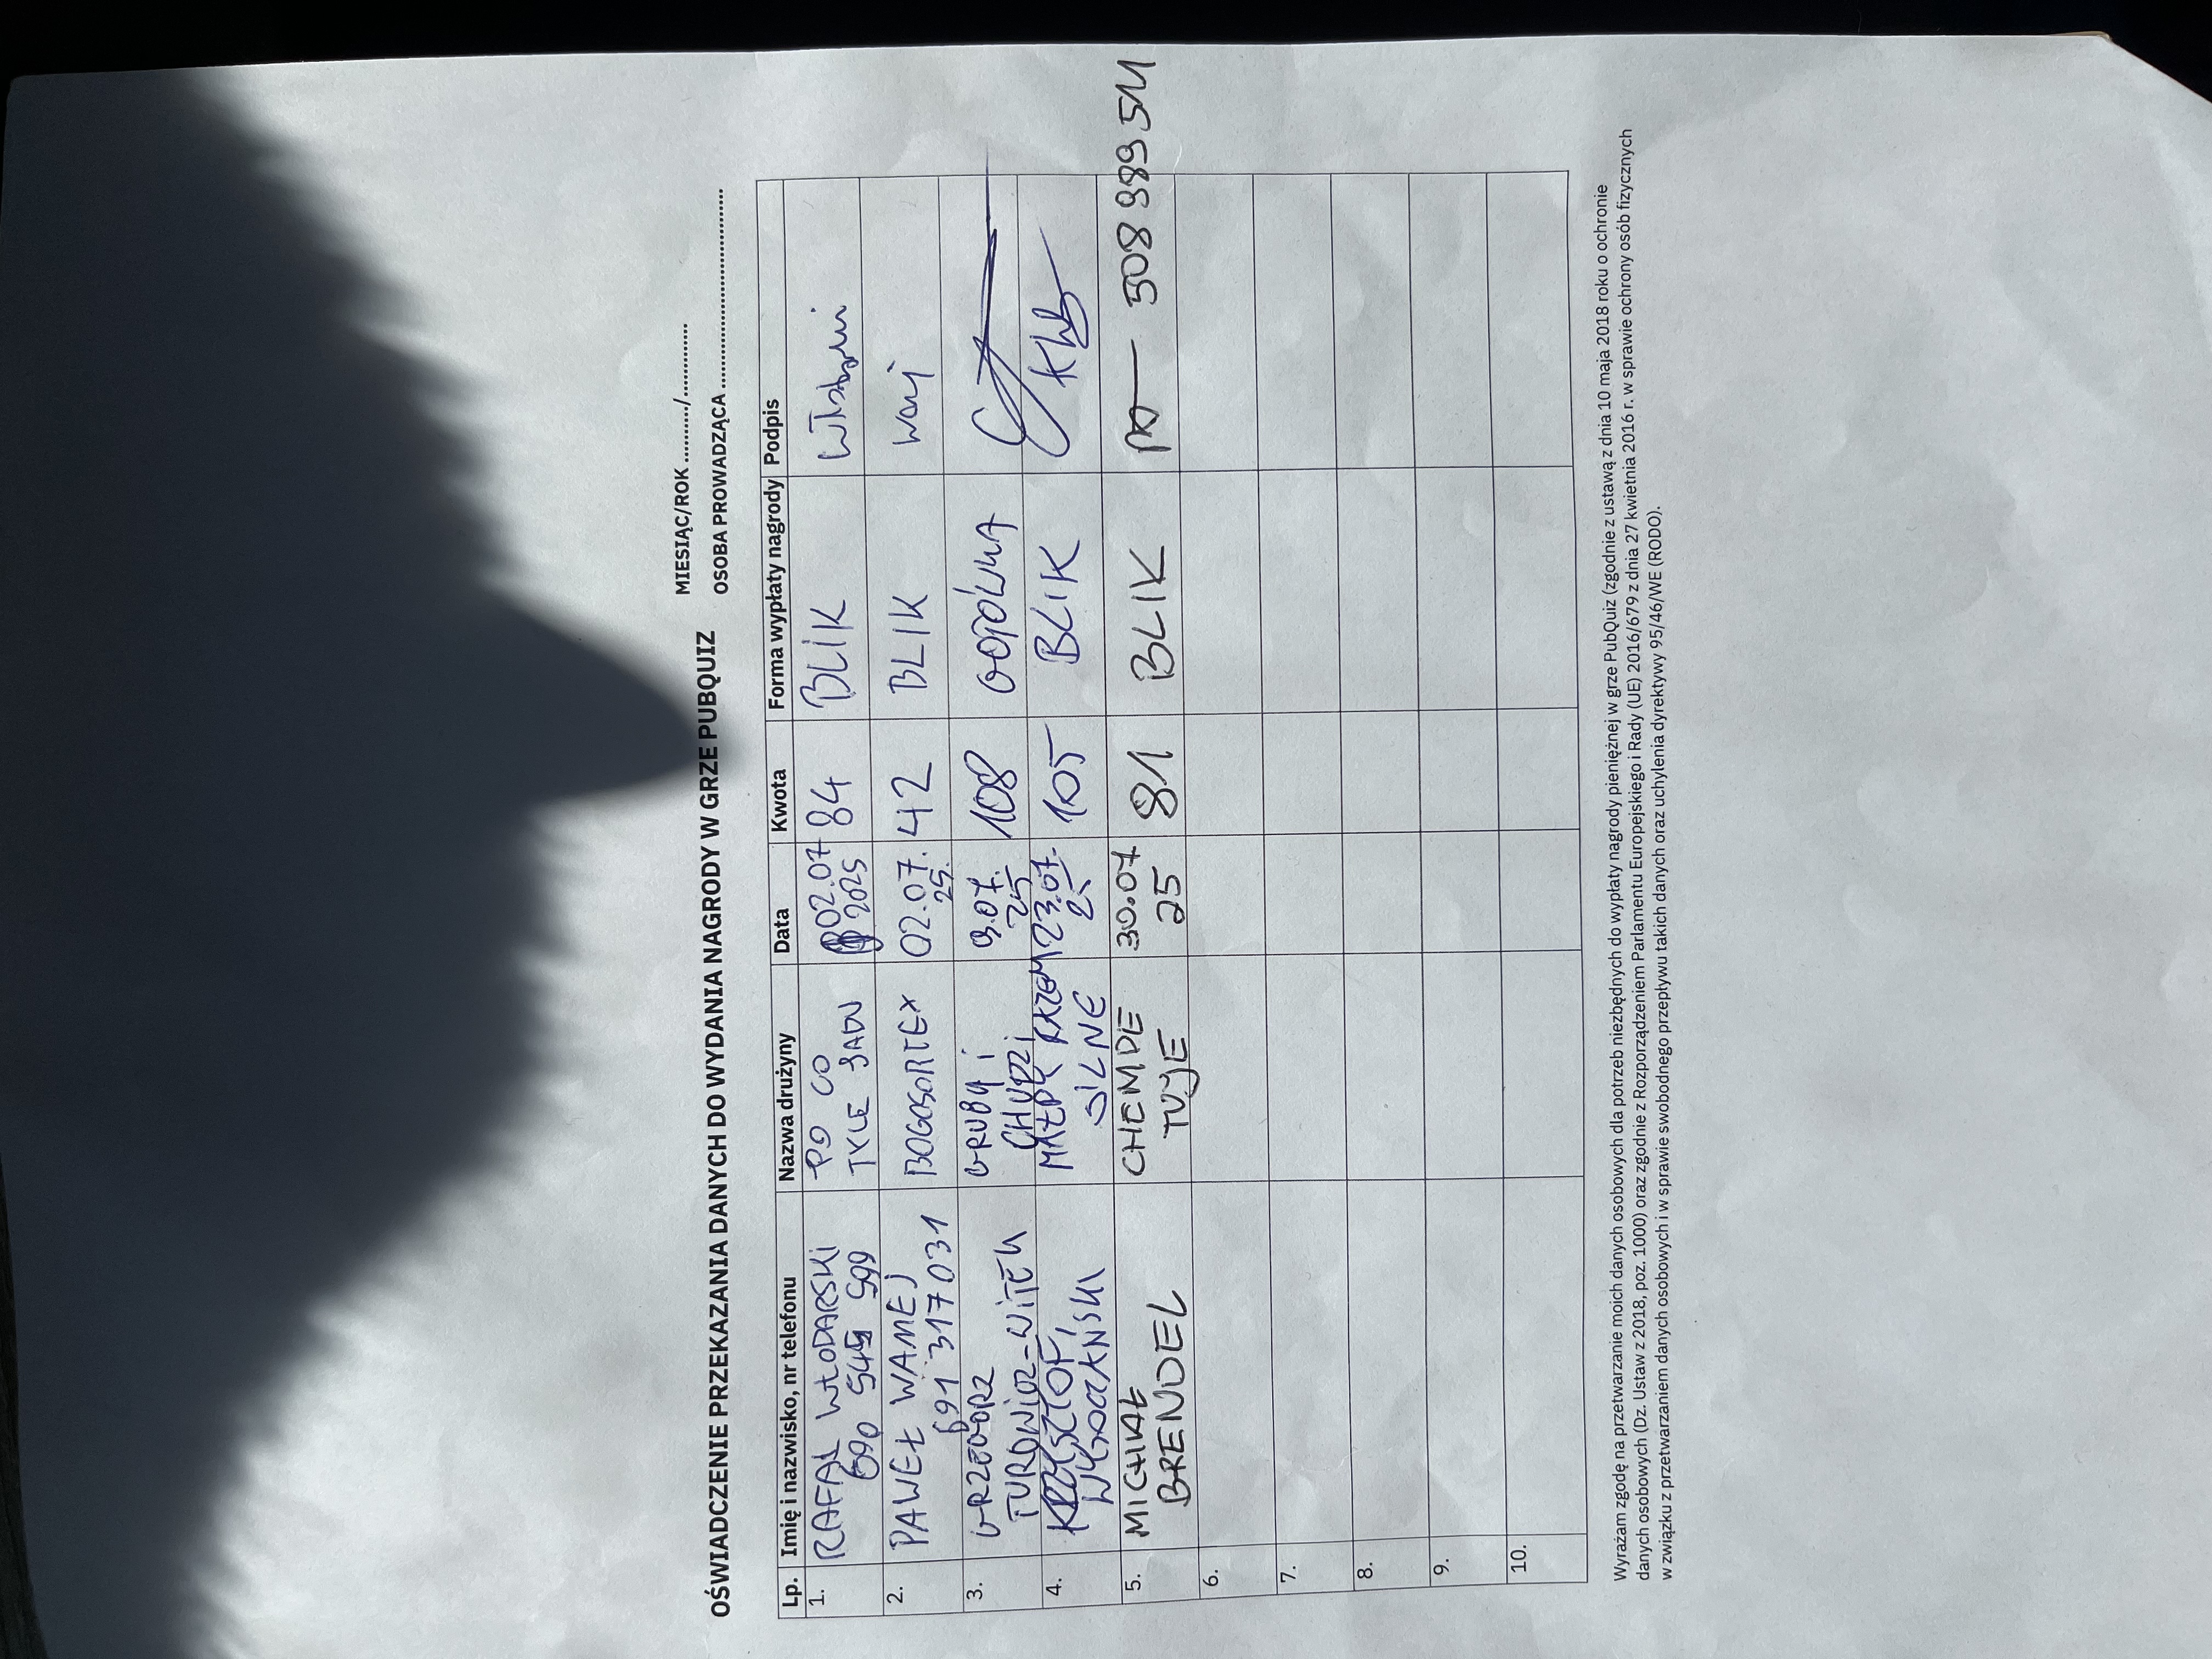 MIESIĄC/ROK ........../............
OŚWIADCZENIE PRZEKAZANIA DANYCH DO WYDANIA NAGRODY W GRZE PUBQUIZ
OSOBA PROWADZĄCA ........................................
Lp. Imię i nazwisko, nr telefonu Nazwa drużyny Data Kwota Forma wypłaty nagrody Podpis
1. RAFAŁ WŁODARSKI PO CO 02.07 84 BLIK
690 599 TYLE JADU 2025
2. PAWEŁ WANEJ BOGOSORTEX 02.07. 42 BLIK Wanej
691 317 031 25.
3. GRZEGORZ GRUBY i 9.07. 108 GOTÓWKA
TUROWICZ-WITEK CHUDZI 25
4. KRZYSZTOF MAŁPY RAZEM 23.07. 105 BLIK
SILNE 25
5. MICHAŁ CHEMDE 30.07 81 BLIK
BRENDEL TUJE 25
6.
7.
8.
9.
10.
Wyrażam zgodę na przetwarzanie moich danych osobowych dla potrzeb niezbędnych do wypłaty nagrody pieniężnej w grze PubQuiz (zgodnie z ustawą z dnia 10 maja 2018 roku o ochronie
danych osobowych (Dz. Ustaw z 2018, poz. 1000) oraz zgodnie z Rozporządzeniem Parlamentu Europejskiego i Rady (UE) 2016/679 z dnia 27 kwietnia 2016 r. w sprawie ochrony osób fizycznych
w związku z przetwarzaniem danych osobowych i w sprawie swobodnego przepływu takich danych oraz uchylenia dyrektywy 95/46/WE (RODO).